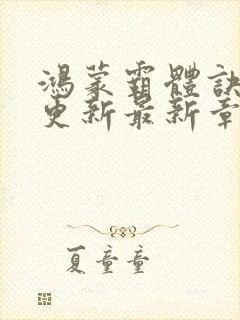 鴻蒙霸體訣
更新最新章
夏童童